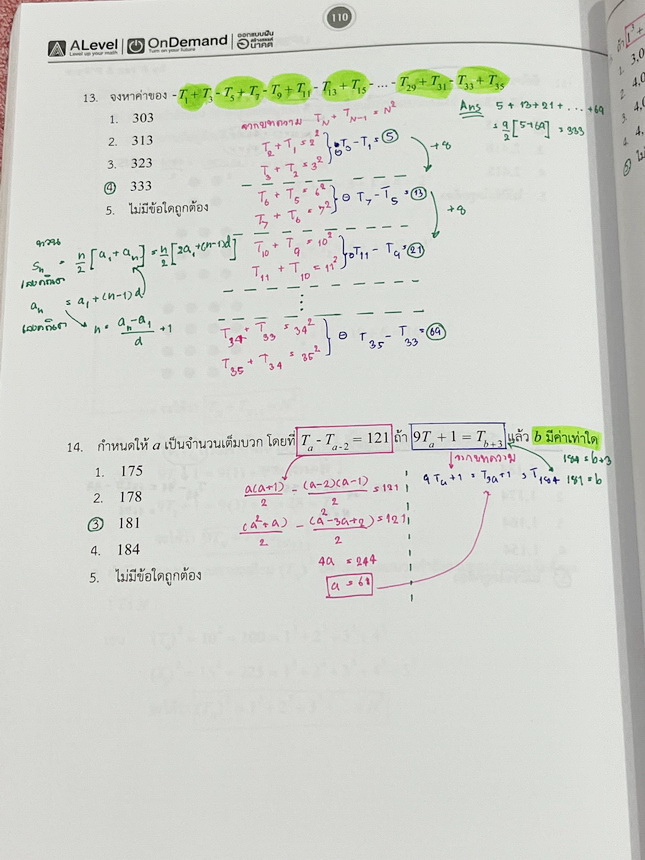 110
ALevel
Level up your math
OnDemand
Turn on your future
ออกแบบฝัน
สร้างสรรค์
อนาคต
13. จงหาค่าของ -T₁ + T₃ - T₅ + T₇ - T₉ + T₁₁ - T₁₃ + T₁₅ - ... - T₂₉ + T₃₁ - T₃₃ + T₃₅
1. 303
2. 313
3. 323
4 333
5. ไม่มีข้อใดถูกต้อง
จากบทความ T_N + T_{N-1} = N²
T₂ + T₁ = 2²
T₃ + T₂ = 3²
⊖ T₃ - T₁ = 5
+8
T₆ + T₅ = 6²
T₇ + T₆ = 7²
⊖ T₇ - T₅ = 13
+8
T₁₀ + T₉ = 10²
T₁₁ + T₁₀ = 11²
T₁₁ - T₉ = 21
T₃₄ + T₃₃ = 34²
T₃₅ + T₃₄ = 35²
⊖ T₃₅ - T₃₃ = 69
Ans 5 + 13 + 21 + ... + 69
= 9/2 [5+69] = 333
ทวน
Sₙ = n/2 [a₁ + aₙ] = n/2 [2a₁ + (n-1)d]
เลขคณิต
aₙ = a₁ + (n-1)d
เลขคณิต
n = (aₙ - a₁)/d + 1
14. กำหนดให้ a เป็นจำนวนเต็มบวก โดยที่ Tₐ - Tₐ₋₂ = 121 ถ้า 9Tₐ + 1 = T_{b+3} แล้ว b มีค่าเท่าใด
1. 175
2. 178
3 181
4. 184
5. ไม่มีข้อใดถูกต้อง
a(a+1)/2 - (a-2)(a-1)/2 = 121
(a²+a)/2 - (a²-3a+2)/2 = 121
4a = 244
a = 61
จากบทความ
9Tₐ + 1 = T₃ₐ₊₁ = T₁₈₄
184 = b+3
181 = b